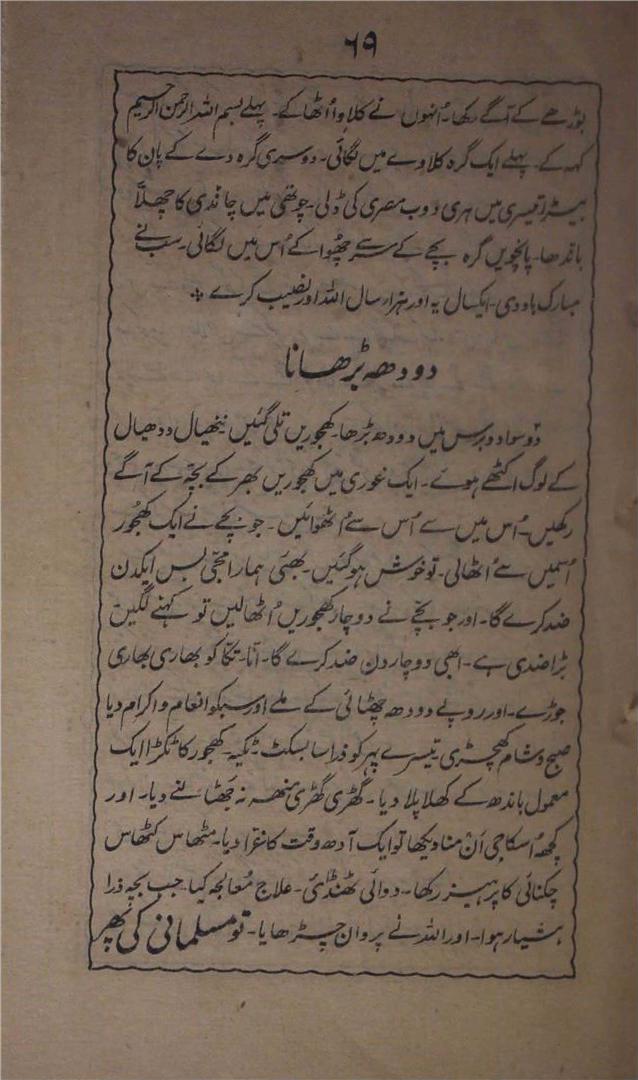 ۶۹
بوڑھے کے آگے رکھا۔ اُنہوں نے کلاوا اُٹھا کے۔ پہلے بسم اللہ الرحمن الرحیم
کہہ کے۔ پہلے ایک گرہ کلاوے میں لگائی۔ دوسری گرہ دے کے پان کا
بیڑا تیسری میں ہری دوب مصری کی ڈلی۔ چوتھی میں چاندی کا چھلّا
باندھا۔ پانچویں گرہ بچے کے سر سے چھُوا کے اُس میں لگائی۔ سب نے
مبارک باد دی۔ ایکسال یہ اور ہزار سال اللہ اور نصیب کرے ٭
دودھ بڑھانا
دو سوا دو برس میں دودھ بڑھا۔ کھجوریں تلی گئیں ننھیال ددھیال
کے لوگ اکٹھے ہوئے۔ ایک غوری میں کھجوریں بھر کے بچّہ کے آگے
رکھیں۔ اُس میں سے اُس سے اُٹھوائیں۔ جو بچے نے ایک کھجُور
اُسمیں سے اُٹھالی۔ تو خوش ہو گئیں۔ بھئی ہمارا مچی بس ایکدن
ضد کرے گا۔ اور جو بچّے نے دو چار کھجوریں اُٹھالیں تو کہنے لگیں
بڑا ضدی ہے۔ ابھی دو چار دن ضد کرے گا۔ انّا۔ تکّا کو بھاری بھاری
جوڑے۔ اور روپے دودھ چھٹائی کے ملے اور سبکو انعام و اکرام دیا
صبح و شام کھچڑی تیسرے پہر کو ذرا سا بسکٹ۔ ٹکیہ۔ کھجور کا ٹکڑا ایک
معمول باندھ کے کھلا پلا دیا۔ گھڑی گھڑی منھ نہ جھٹالنے دیا۔ اور
کچھ اُسکا جی اَن منا دیکھا تو ایک آدھ وقت کا نقرا دیا۔ مٹھاس کٹھاس
چکنائی کا پرہیز رکھا۔ دوائی ٹھنڈائی۔ علاج مُعالجہ کیا۔ جب بچہ ذرا
ہشیار ہوا۔ اور اللہ نے پروان چڑھایا۔ تو مسلمانی کی پھر